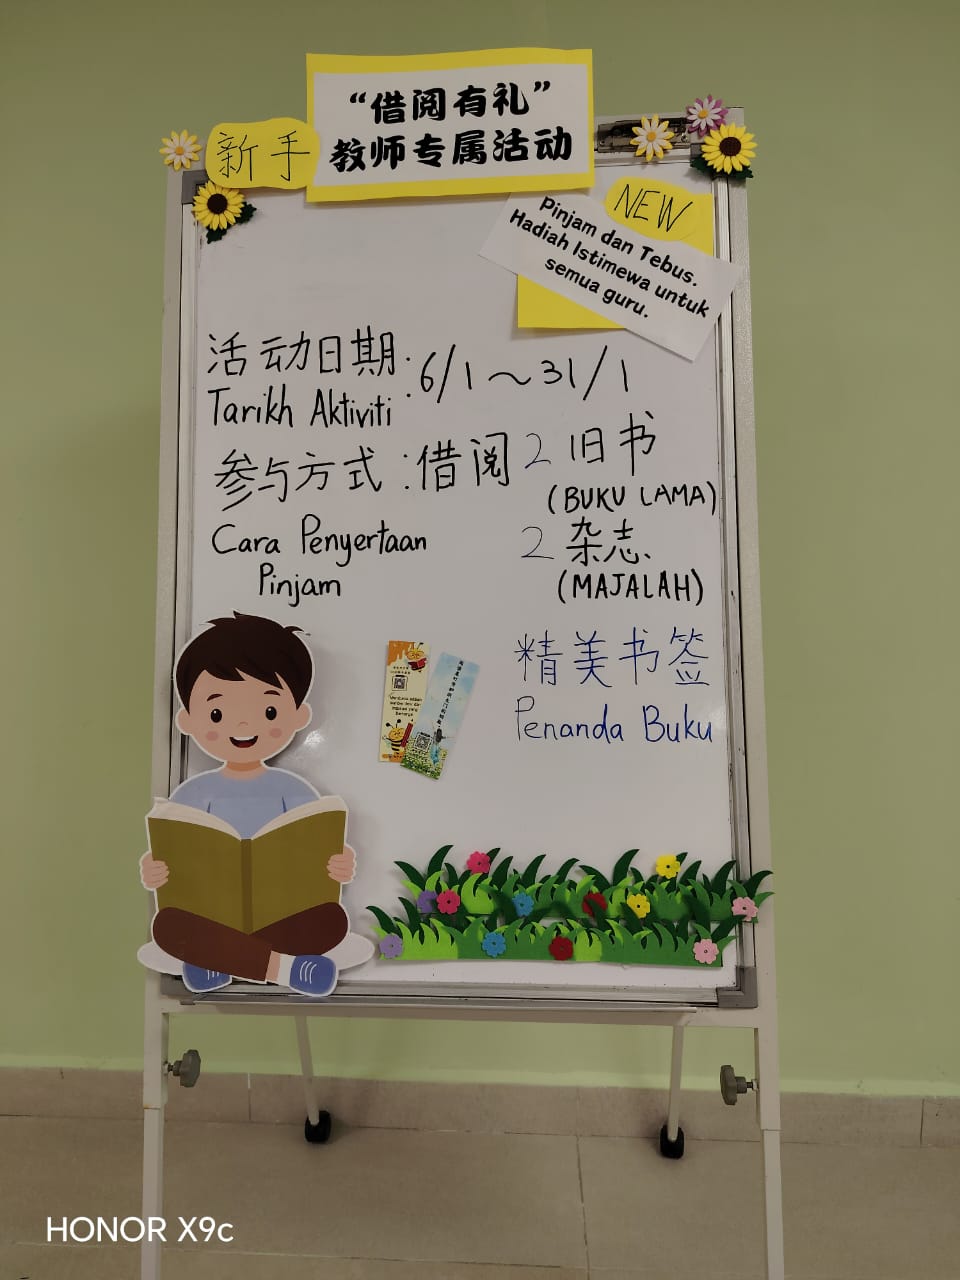 “借阅有礼”
新手
教师专属活动
NEW
Pinjam dan Tebus.
Hadiah Istimewa untuk
semua guru.
活动日期: 6/1 ~ 31/1
Tarikh Aktiviti
参与方式: 借阅 2 旧书
(BUKU LAMA)
Cara Penyertaan
2 杂志
Pinjam
(MAJALAH)
精美书签
Penanda Buku
HONOR X9c